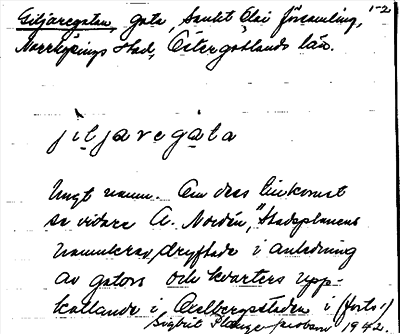 Giljaregatan, gata, Sankt Olai församling, 1-2
Norrköpings stad, Östergötlands län.
jiljaregata
Ungt namn. Om dess tillkomst
se vidare A. Nordén, "Stadsplanens
namnkrav, dryftade i anledning
av gators och kvarters upp-
kallande i Oxelbergsstaden i (forts!)
1942.